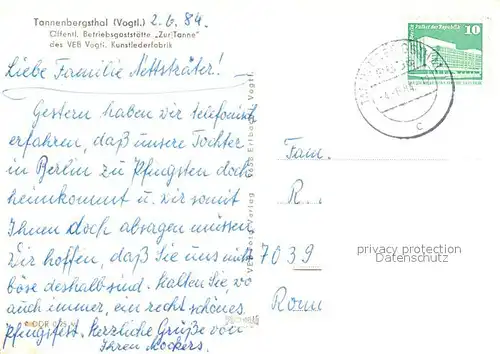 Tannenbergsthal (Vogtl.) 2.6.84.
Öffentl. Betriebsgaststätte „Zur Tanne"
des VEB Vogtl. Kunstlederfabrik
Liebe Familie Nettsträter!
Gestern haben wir telefonisch
erfahren, daß unsere Tochter
in Berlin zu Pfingsten doch
heimkommt u. wir somit
Ihnen doch absagen müssen.
Wir hoffen, daß Sie uns nicht
böse deshalb sind. Halten Sie, wo
auch immer, ein recht schönes
Pfingstfest. Herzliche Grüße von
Ihren Mockers.
Palast der Republik
10
c
Fam.
R.
7039
Rom
privacy protection
Datenschutz